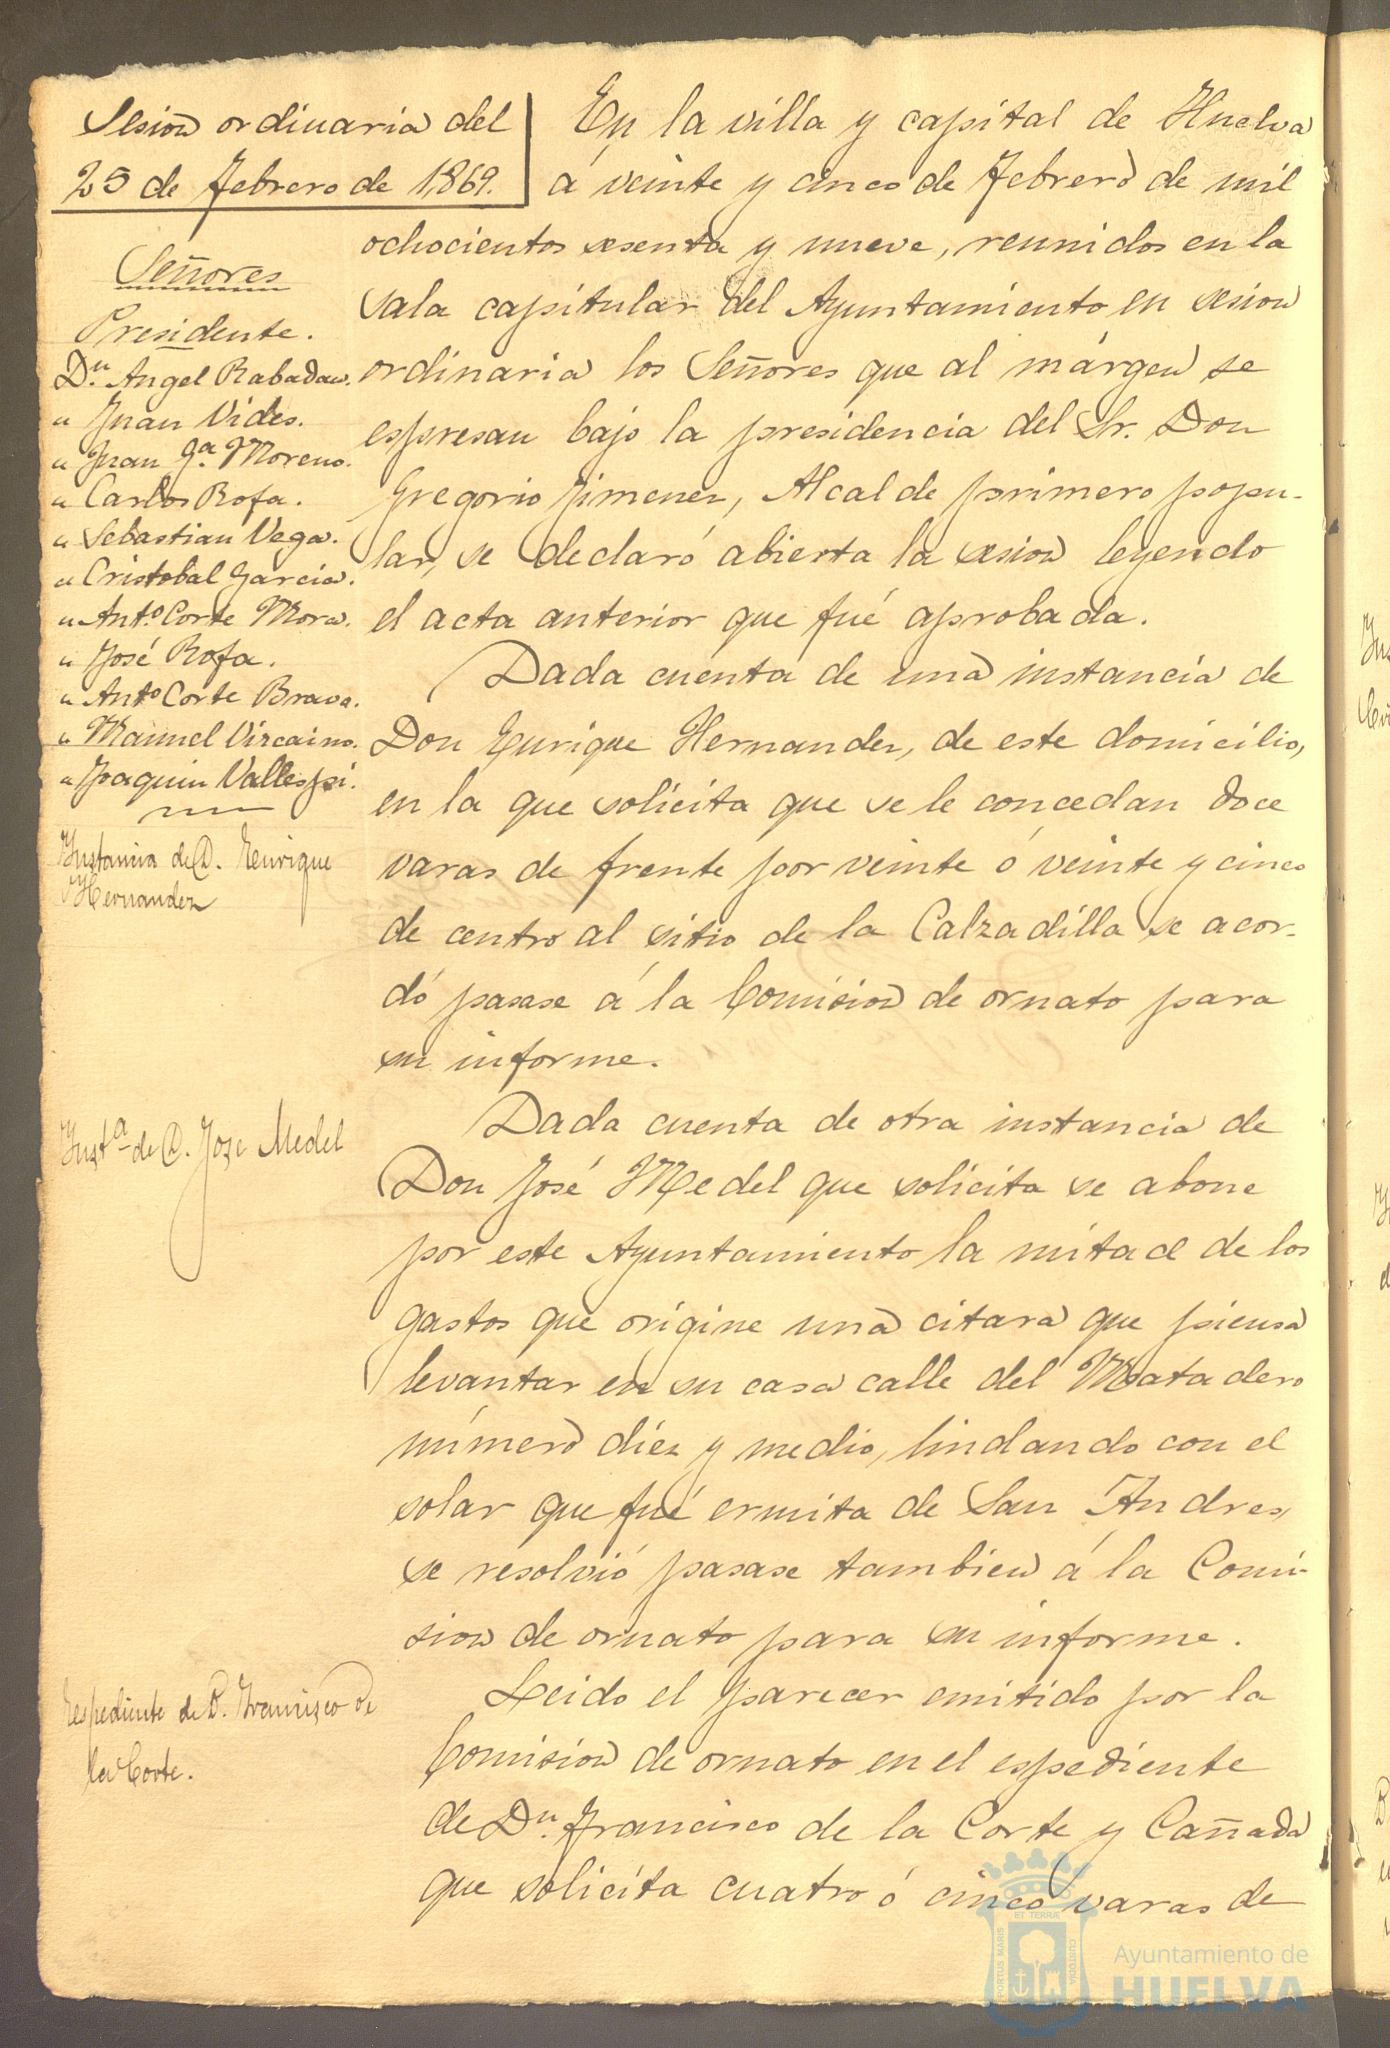 Sesion ordinaria del
25 de Febrero de 1869.
Señores
Presidente.
Dn. Angel Rabadan.
" Juan Vides.
" Juan Ga. Moreno.
" Carlos Rofa.
" Sebastian Vega.
" Cristobal Garcia.
" Anto. Corte Mora.
" José Rofa.
" Anto Corte Bravo.
" Manuel Vizcaino.
" Joaquin Vallespi.
Instancia de D. Enrique
Hernandez
Insta de D. Jose Medel
Espediente de D. Francisco de
la Corte.
En la villa y capital de Huelva
á veinte y cinco de Febrero de mil
ochocientos sesenta y nueve, reunidos en la
sala capitular del Ayuntamiento en sesion
ordinaria los Señores que al márgen se
espresan bajo la presidencia del Sr. Don
Gregorio Jimenez, Alcalde primero popu-
lar, se declaró abierta la sesion leyendo
el acta anterior que fué aprobada.
Dada cuenta de una instancia de
Don Enrique Hernandez, de este domicilio,
en la que solicita que se le concedan doce
varas de frente por veinte ó veinte y cinco
de centro al sitio de la Calzadilla se acor-
dó pasase á la Comision de ornato para
su informe.
Dada cuenta de otra instancia de
Don José Medel que solicita se abone
por este Ayuntamiento la mitad de los
gastos que origine una citara que piensa
levantar en su casa calle del Matadero
número diez y medio, lindando con el
solar que fué ermita de San Andres,
se resolvió pasase tambien á la Comi-
sion de ornato para su informe.
Leido el parecer emitido por la
Comision de ornato en el espediente
de Dn. Francisco de la Corte y Cañada
que solicita cuatro ó cinco varas de
PORTUS MARIS
ET TERRÆ
CUSTODIA
Ayuntamiento de
HUELVA